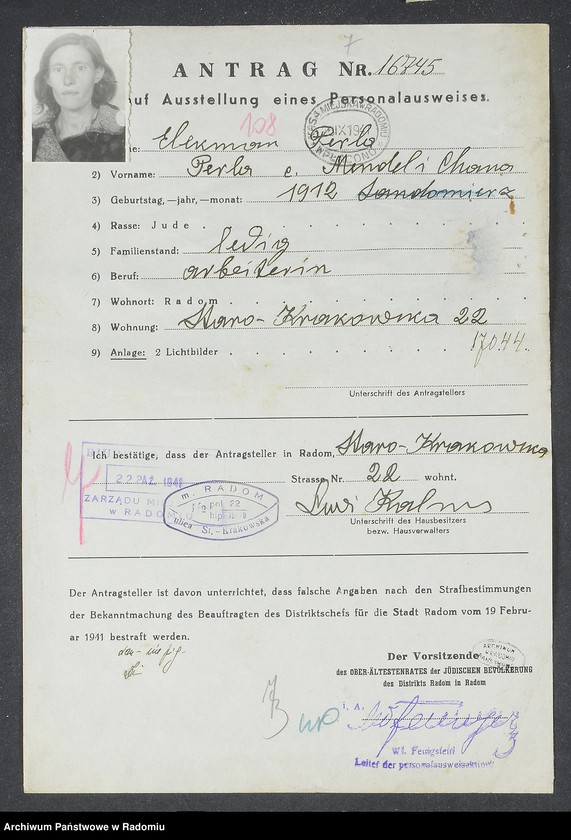 7
ANTRAG NR. 16745
auf Ausstellung eines Personalausweises.
108
Elekman Perla
2) Vorname: Perla c. Mendel i Chana
3) Geburtstag, —jahr, —monat: 1912 Sandomierz
4) Rasse: Jude
5) Familienstand: ledig
6) Beruf: arbeiterin
7) Wohnort: Radom
8) Wohnung: Staro-Krakowska 22
9) Anlage: 2 Lichtbilder
17044
Unterschrift des Antragstellers
Ich bestätige, dass der Antragsteller in Radom, Staro-Krakowska
Strasse Nr. 22 wohnt.
22
ZARZĄDU
w RADO
m. RADOM
pol. 22
hip.
ulica St.-Krakowska
Unterschrift des Hausbesitzers
bezw. Hausverwalters
Der Antragsteller ist davon unterrichtet, dass falsche Angaben nach den Strafbestimmungen
der Bekanntmachung des Beauftragten des Distriktschefs für die Stadt Radom vom 19 Febru-
ar 1941 bestraft werden.
Der Vorsitzende
des OBER-ÄLTESTENRATES der JÜDISCHEN BEVÖLKERUNG
des Distrikts Radom in Radom
i. A.
Wł. Fenigstein
Leiter der personalausweisaktion
Archiwum Państwowe w Radomiu